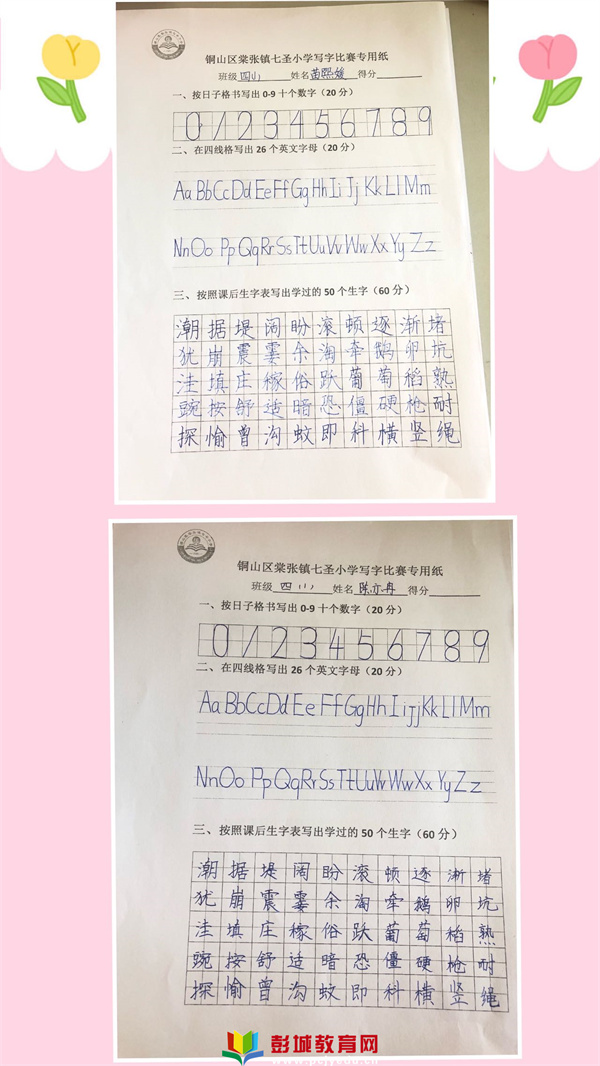 铜山区棠张镇七圣小学写字比赛专用纸
班级 四(1) 姓名 苗熙媛 得分
一、按日子格书写出 0-9 十个数字（20 分）
0 1 2 3 4 5 6 7 8 9
二、在四线格写出 26 个英文字母（20 分）
Aa Bb Cc Dd Ee Ff Gg Hh Ii Jj Kk Ll Mm
Nn Oo Pp Qq Rr Ss Tt Uu Vv Ww Xx Yy Zz
三、按照课后生字表写出学过的 50 个生字（60 分）
潮 据 堤 阔 盼 滚 顿 逐 渐 堵
犹 崩 震 霎 余 淘 牵 鹅 卵 坑
洼 填 庄 稼 俗 跃 葡 萄 稻 熟
豌 按 舒 适 暗 恐 僵 硬 枪 耐
探 愉 曾 沟 蚊 即 科 横 竖 绳
铜山区棠张镇七圣小学写字比赛专用纸
班级 四(1) 姓名 陈亦冉 得分
一、按日子格书写出 0-9 十个数字（20 分）
0 1 2 3 4 5 6 7 8 9
二、在四线格写出 26 个英文字母（20 分）
Aa Bb Cc Dd Ee Ff Gg Hh Ii Jj Kk Ll Mm
Nn Oo Pp Qq Rr Ss Tt Uu Vv Ww Xx Yy Zz
三、按照课后生字表写出学过的 50 个生字（60 分）
潮 据 堤 阔 盼 滚 顿 逐 渐 堵
犹 崩 震 霎 余 淘 牵 鹅 卵 坑
洼 填 庄 稼 俗 跃 葡 萄 稻 熟
豌 按 舒 适 暗 恐 僵 硬 枪 耐
探 愉 曾 沟 蚊 即 科 横 竖 绳
彭城教育网